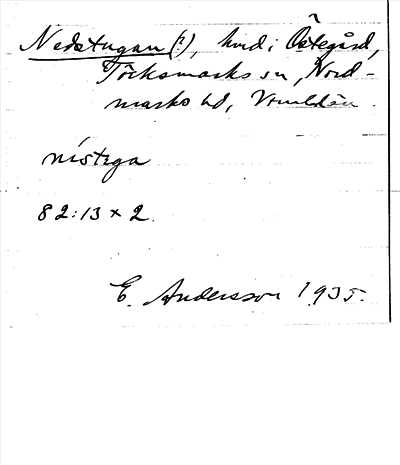 Nedstugan (?), hmd i Östegård,
Töcksmarks sn, Nord-
marks hd, Värmland
nístega
82:13 x 2.
E. Andersson 1935.